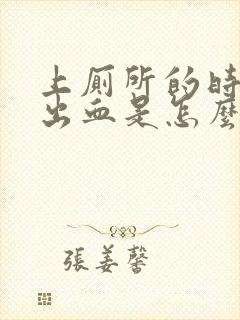 上厕所的时
出血是怎麼
張姜馨